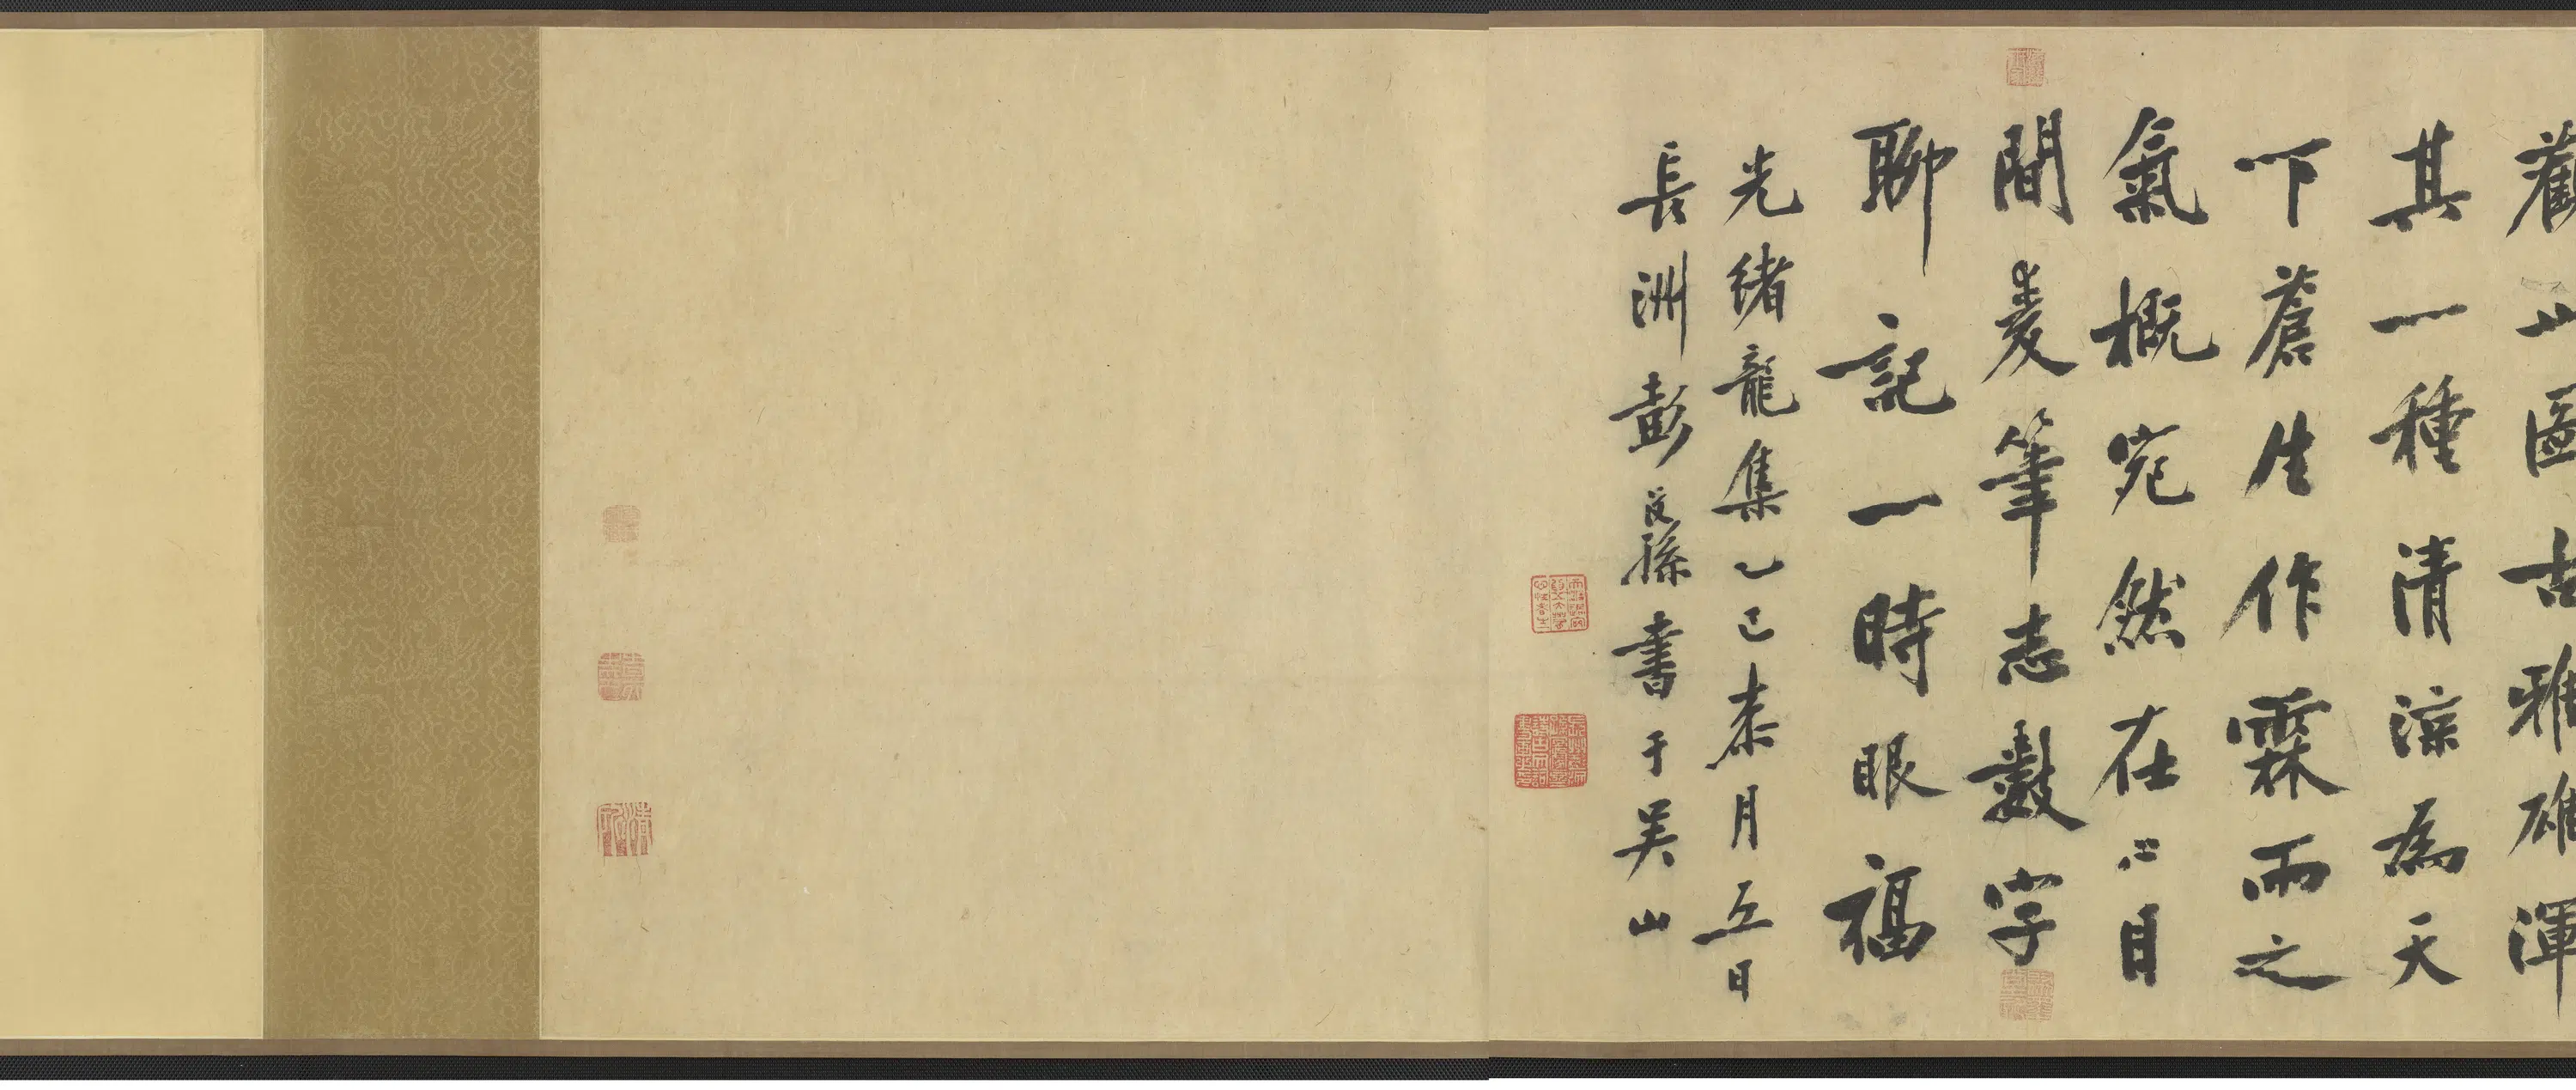 觀山圖古雅雄渾
其一種清涼為天
下蒼生作霖雨之
氣概宛然在心目
間爰筆志數字
聊記一時眼福
光緒龍集乙巳桼月五日
長洲彭穀孫書于吴山